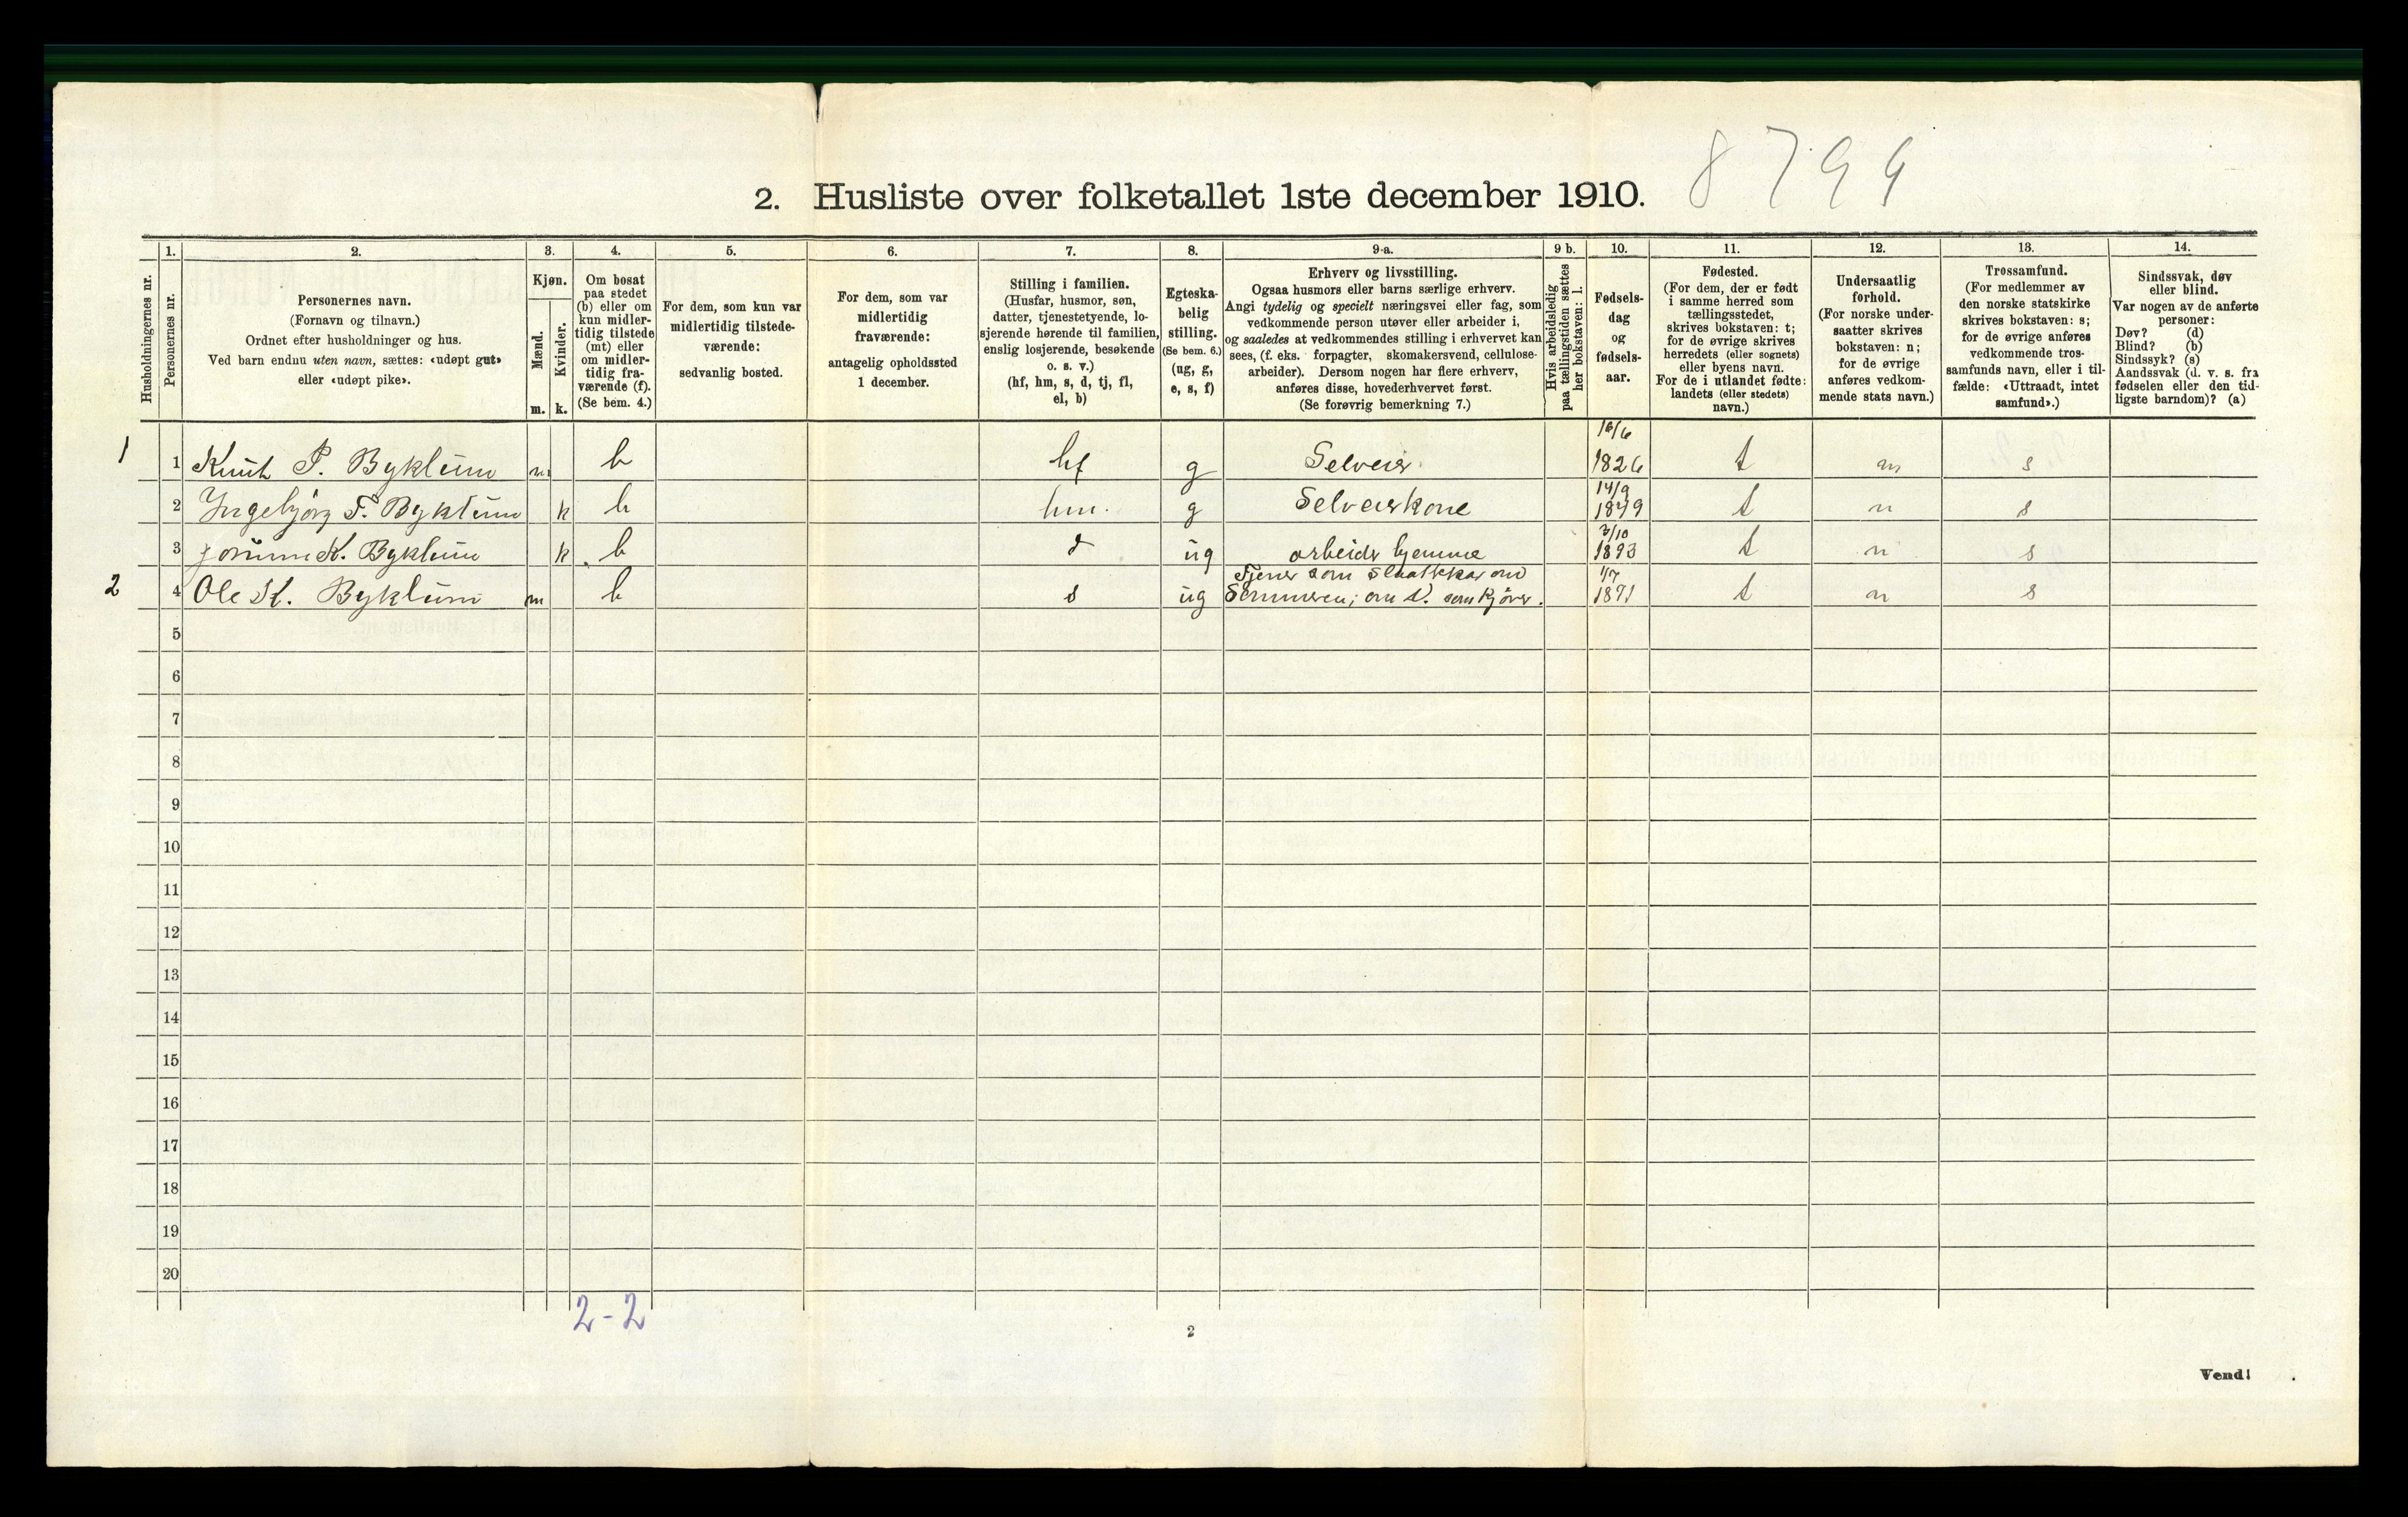 8794
2. Husliste over folketallet 1ste december 1910.
Husholdningernes nr.
1.
Personernes nr.
2.
Personernes navn.
(Fornavn og tilnavn.)
Ordnet efter husholdninger og hus.
Ved barn endnu uten navn, sættes: «udøpt gut»
eller «udøpt pike».
3.
Kjøn.
Mænd.
Kvinder.
m. k.
4.
Om bosat
paa stedet
(b) eller om
kun midler-
tidig tilstede
(mt) eller
om midler-
tidig fra-
værende (f).
(Se bem. 4.)
5.
For dem, som kun var
midlertidig tilstede-
værende:
sedvanlig bosted.
6.
For dem, som var
midlertidig
fraværende:
antagelig opholdssted
1 december.
7.
Stilling i familien.
(Husfar, husmor, søn,
datter, tjenestetyende, lo-
sjerende hørende til familien,
enslig losjerende, besøkende
o. s. v.)
(hf, hm, s, d, tj, fl,
el, b)
8.
Egteska-
belig
stilling.
(Se bem. 6.)
(ug, g,
e, s, f)
9 a.
Erhverv og livsstilling.
Ogsaa husmors eller barns særlige erhverv.
Angi tydelig og specielt næringsvei eller fag, som
vedkommende person utøver eller arbeider i,
og saaledes at vedkommendes stilling i erhvervet kan
sees, (f. eks. forpagter, skomakersvend, cellulose-
arbeider). Dersom nogen har flere erhverv,
anføres disse, hovederhvervet først.
(Se forøvrig bemerkning 7.)
9 b.
Hvis arbeidsledig
paa tællingstiden sættes
her bokstaven: l.
10.
Fødsels-
dag
og
fødsels-
aar.
11.
Fødested.
(For dem, der er født
i samme herred som
tællingsstedet,
skrives bokstaven: t;
for de øvrige skrives
herredets (eller sognets)
eller byens navn.
For de i utlandet fødte:
landets (eller stedets)
navn.)
12.
Undersaatlig
forhold.
(For norske under-
saatter skrives
bokstaven: n;
for de øvrige
anføres vedkom-
mende stats navn.)
13.
Trossamfund.
(For medlemmer av
den norske statskirke
skrives bokstaven: s;
for de øvrige anføres
vedkommende tros-
samfunds navn, eller i til-
fælde: «Uttraadt, intet
samfund».)
14.
Sindssvak, døv
eller blind.
Var nogen av de anførte
personer:
Døv? (d)
Blind? (b)
Sindssyk? (s)
Aandssvak (d. v. s. fra
fødselen eller den tid-
ligste barndom)? (a)
1 1 Knut P. Byklum m b hf g Selveier 16/6 1826 t n s
2 Ingebjørg T. Byklum k b hm. g Selveierkone 14/9 1849 t n s
3 Jorunn K. Byklum k b d ug arbeider hjemme 3/10 1893 t n s
2 4 Ole K. Byklum m b s ug Tjener som slaatkar om Sommeren; om V. som kjører. 1/7 1871 t n s
5
6
7
8
9
10
11
12
13
14
15
16
17
18
19
20
2-2
2
Vend!